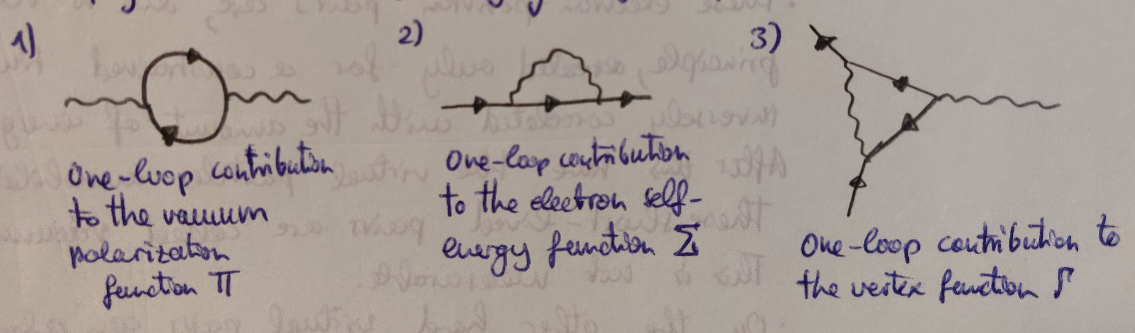 1)
One-loop contribution
to the vacuum
polarization
function Π
2)
One-loop contribution
to the electron self-
energy function Σ
3)
One-loop contribution to
the vertex function Γ